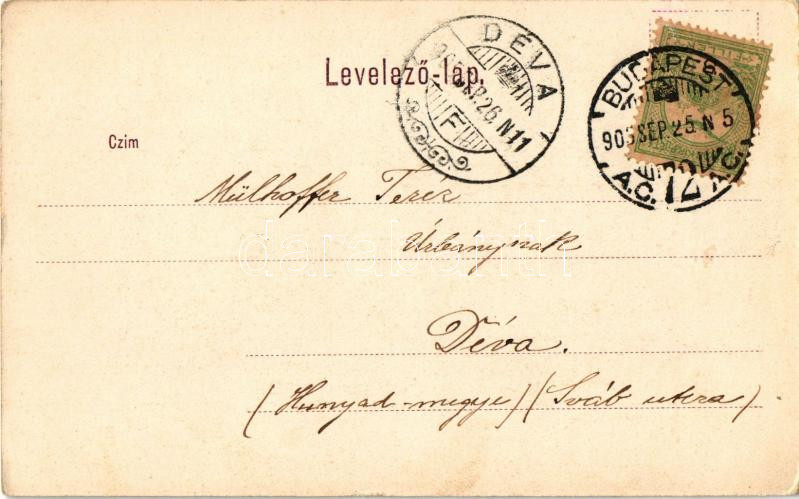 Levelező-lap.
DÉVA
905 SEP. 26 N 11
F
BUDAPEST
905 SEP 25 N 5
A.C. 72 A.C.
FILLÉR
Czim
Mülhoffer Terez
Úrleánynak
Déva.
(Hunyad-megye) (Sváb utcza)
darabanth